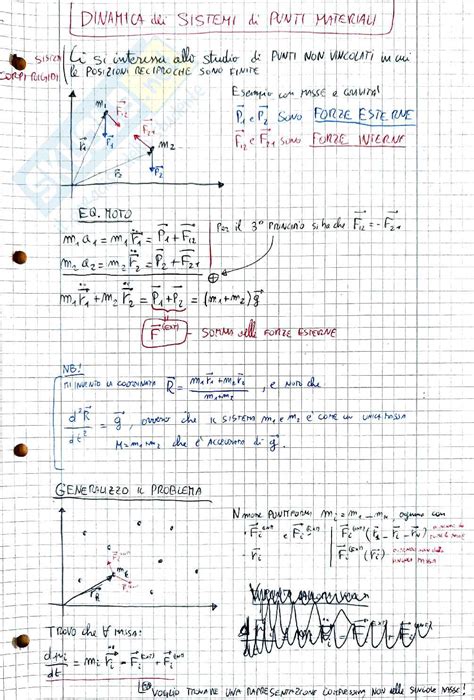 DINAMICA dei SISTEMI di PUNTI MATERIALI
SISTEMI
CORPI RIGIDI
Ci si interessa allo studio di PUNTI NON VINCOLATI in cui
le POSIZIONI RECIPROCHE SONO FINITE
Esempio con MASSE e GRAVITÀ!
P₁ e P₂ SONO FORZE ESTERNE
F₁₂ e F₂₁ SONO FORZE INTERNE
m₁ F₁₂
r₁ P₁ F₂₁
m₂
r₂ P₂
EQ. MOTO
m₁a₁ = m₁r̈₁ = P₁ + F₁₂
Per il 3° PRINCIPIO si ha che F₁₂ = -F₂₁
m₂a₂ = m₂r̈₂ = P₂ + F₂₁
m₁r̈₁ + m₂r̈₂ = P₁ + P₂ = (m₁+m₂)g
F^(EXT) - SOMMA delle FORZE ESTERNE
NB!
MI INVENTO LA COORDINATA R = m₁r₁ + m₂r₂ / m₁+m₂, e NOTO che
d²R/dt² = g, ovvero che IL SISTEMA m₁ e m₂ È COME UN'UNICA MASSA
M = m₁+m₂ che È ACCELERATA di g.
GENERALIZZO IL PROBLEMA
N masse PUNTIFORMI
TROVO che ∀ MASSA:
VOGLIO TROVARE UNA RAPPRESENTAZIONE COMPLESSIVA NON delle SINGOLE MASSE!